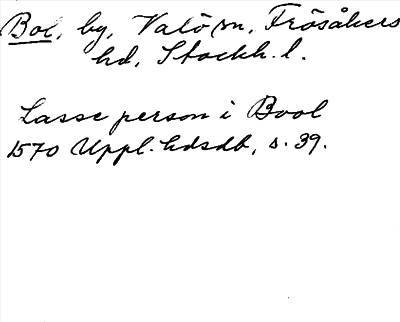 Bol, by, Valö sn, Frösåkers
hd, Stockh. l.
Lasse person i Bool
1570 Uppl. hdsdb, s. 39.